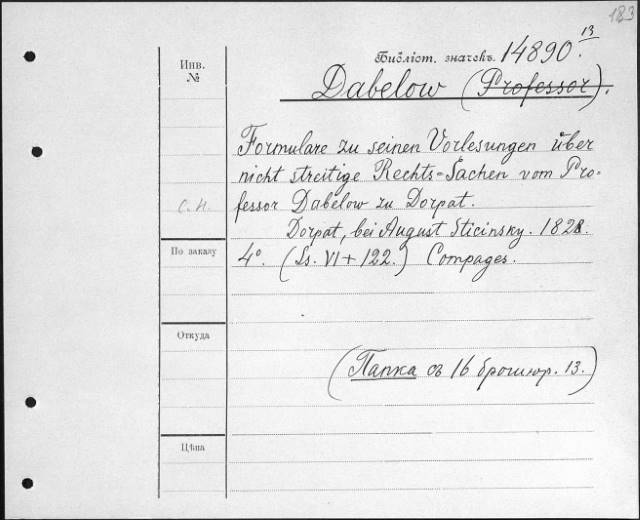 183
Библіот. значекъ. 14890.13
Инв.
№
Dabelow (Professor).
Formulare zu seinen Vorlesungen über
nicht streitige Rechts-Sachen vom Pro-
fessor Dabelow zu Dorpat.
С.Н.
Dorpat, bei August Sticinsky. 1821.
По заказу
4o. (Ss. VI + 122.) Compages.
Откуда
(Папка съ 16 брошюр. 13.)
Цѣна